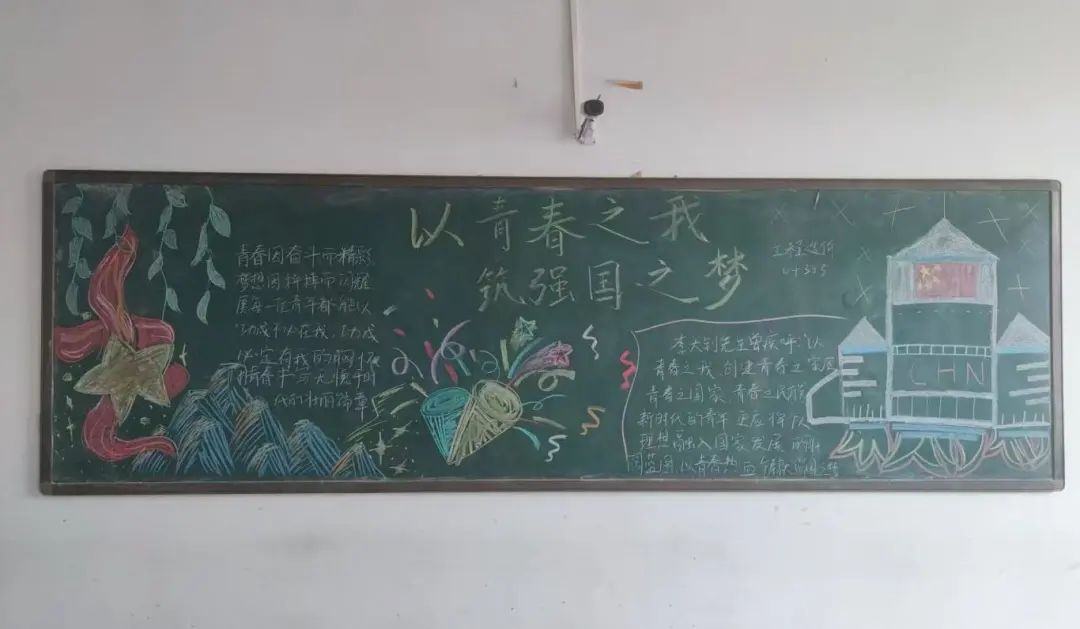 以青春之我
筑强国之梦
青春因奋斗而精彩
梦想因拼搏而闪耀
愿每一位青年都能以
功成不必在我,功成
必定有我的胸怀
用青春书写无愧于时
代的壮丽篇章
工程造价
李大钊先生曾疾呼“以
青春之我 创建青春之家庭
青春之国家 青春之民族
新时代的青年 更应将队
理想融入国家发展的
蓝图 以青春热血
CHN